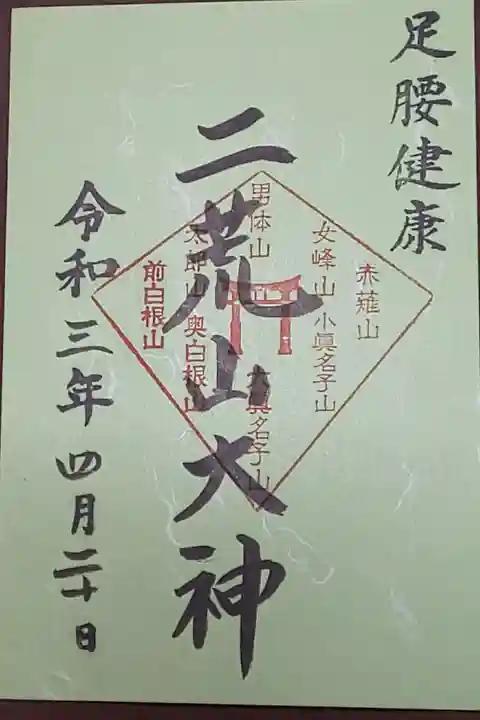 足腰健康
赤薙山
女峰山 小眞名子山
男体山 大眞名子山
二荒山大神
太郎山 奥白根山
前白根山
令和三年四月二十日